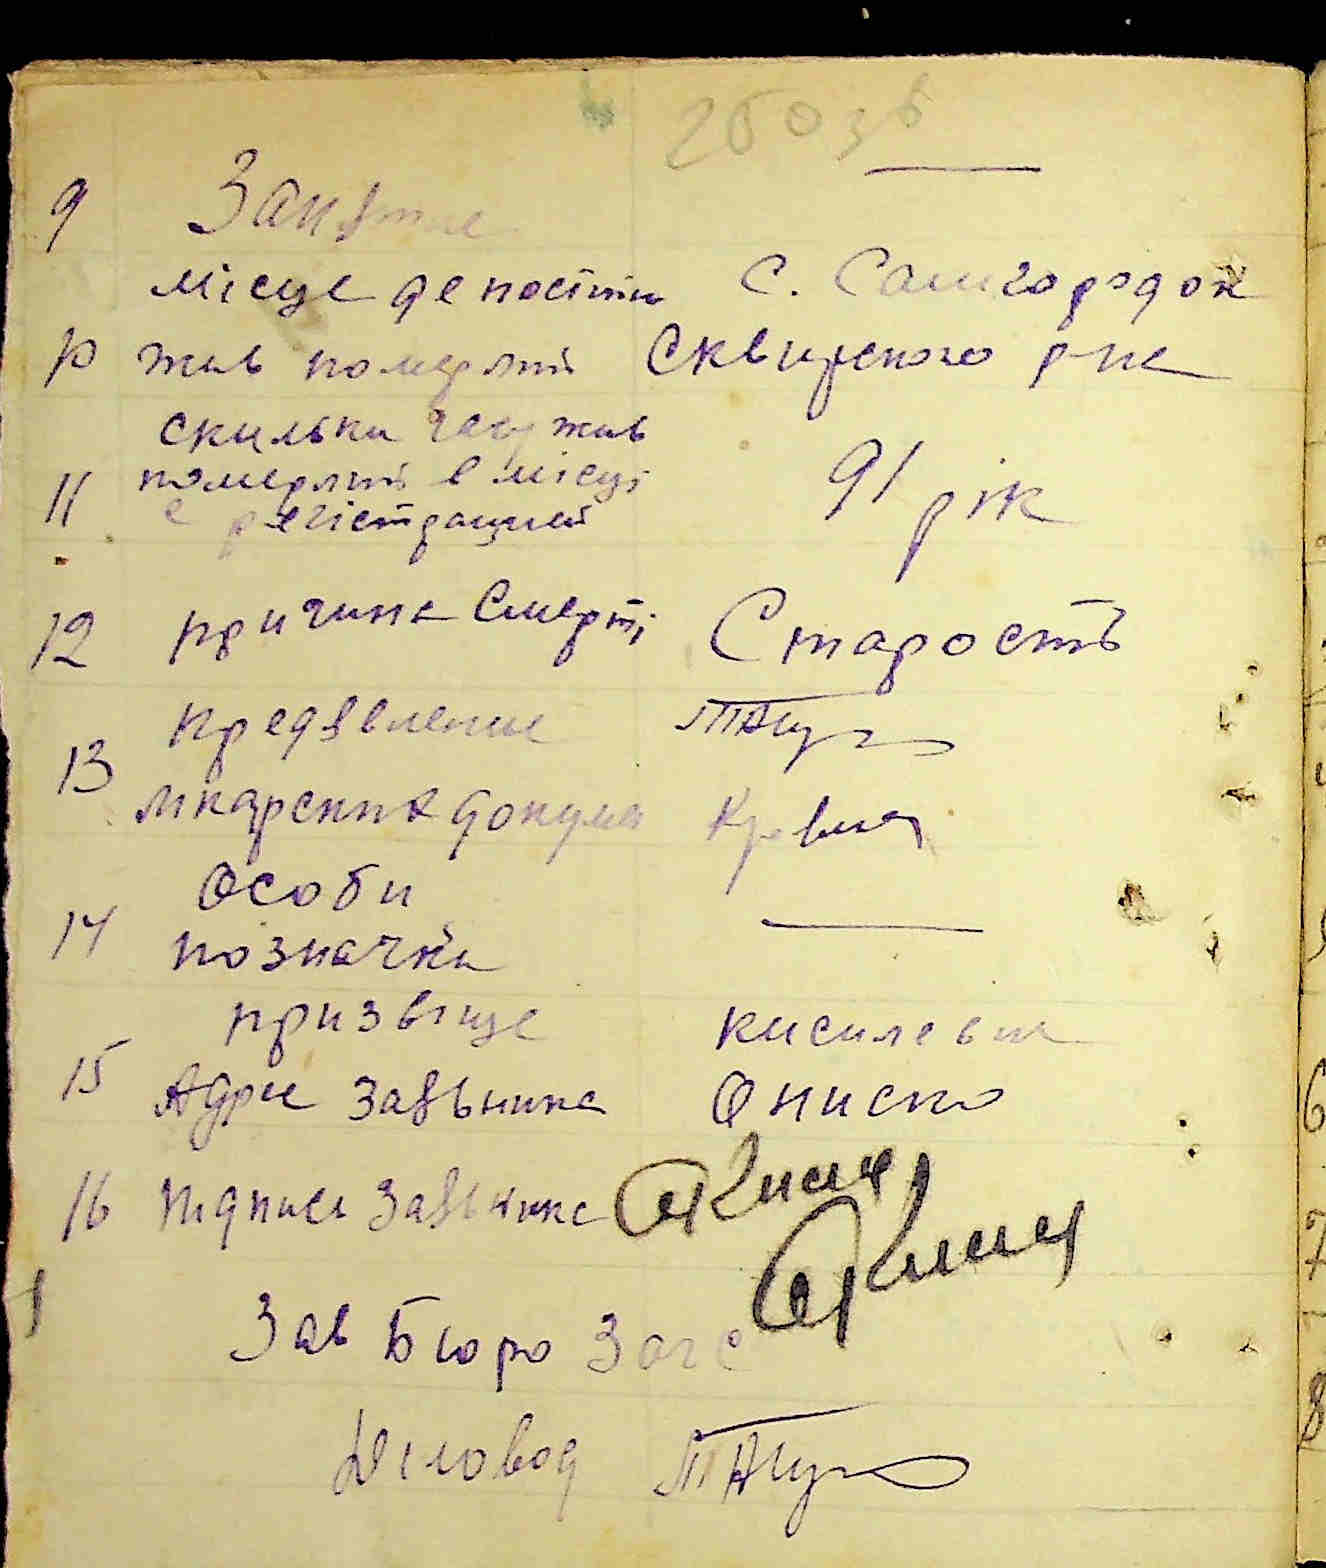 9 Заняття
місце де постійно с. Самгородок
10 жив померлий Сквирского р-на
скилько часу жив
11 померлий в місці 91 рік
е регістрацией
12 причина смерти Старость
предявление
13 лікарских докумен
Особи
14 позначки
призвіще Кисилевич
15 Адрес заявьника Ониско
16 Підпись заявьника
Зав Бюро Загс
Діловод